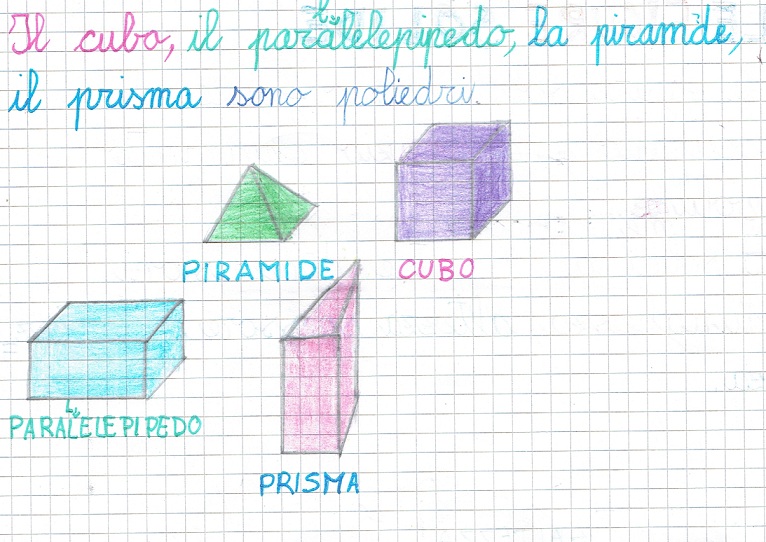 Il cubo, il parallelepipedo, la piramide,
il prisma sono poliedri.
PIRAMIDE CUBO
PARALLELEPIPEDO
PRISMA